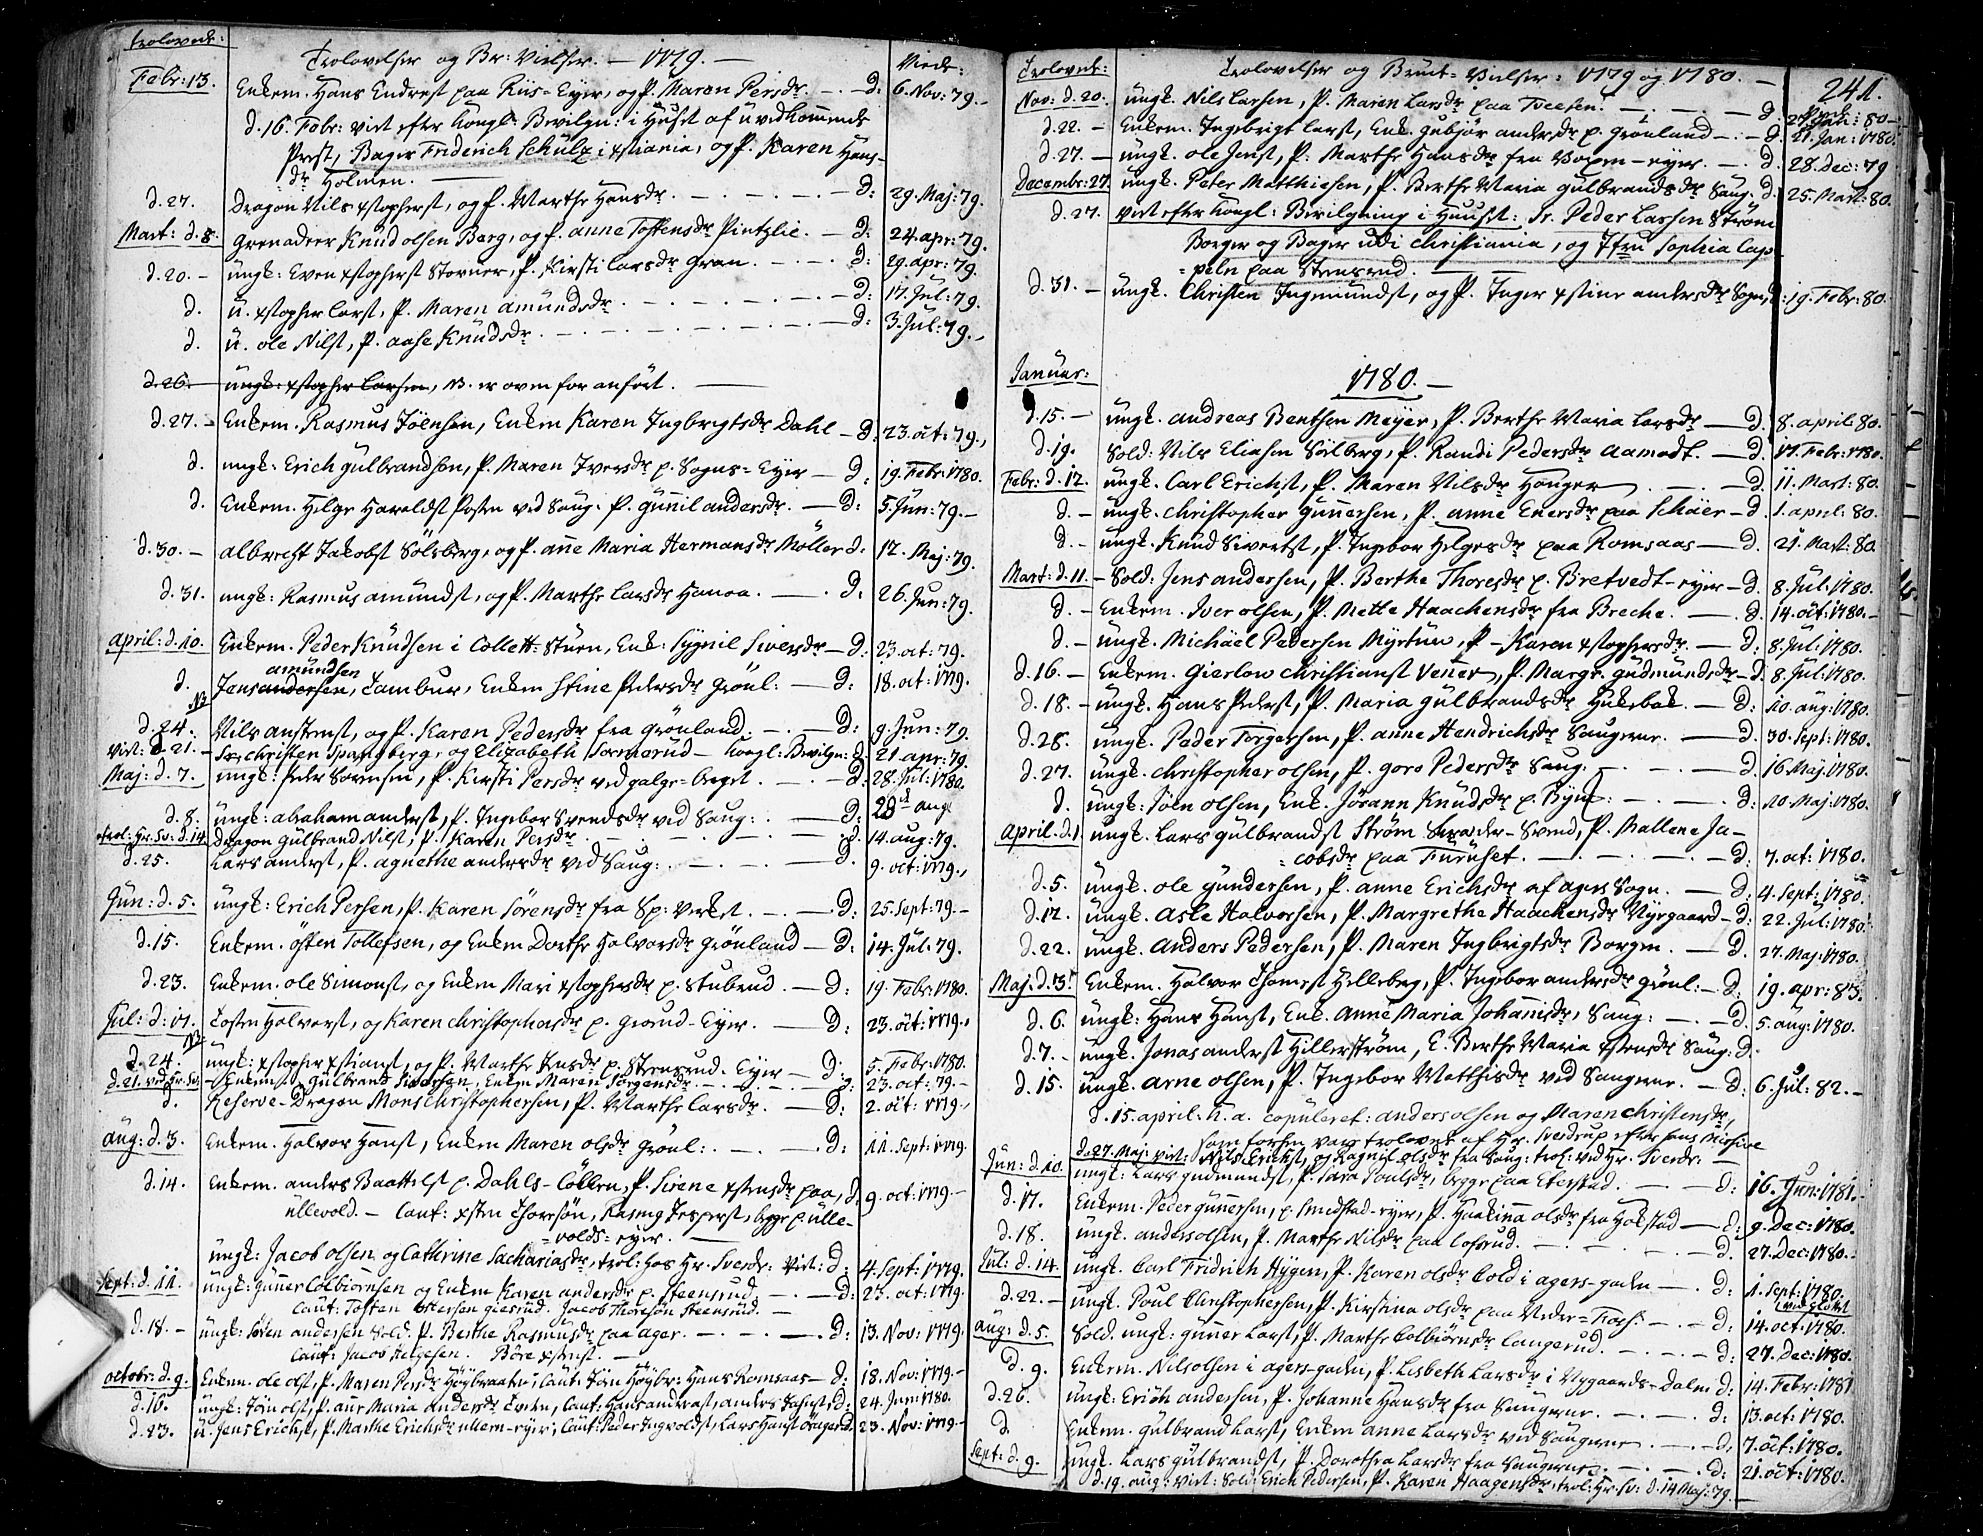 Trolovede:
Trolovelser og Br: Vielser. — 1779. —
Viede:
Febr: 13. Enkem. Hans Endrest paa Riis-Eyer, og P. Maren Persdr — d: 6. Nov: 79. —
d. 16. Febr: viet efter Kongl: Bevilgn: i Huset af uvedkommende
Prest, Bager Friderich Schülz i Xstiania, og P. Karen Hans-
dr Holmen.
d. 27. Dragon Nils Xstopherst, og P. Marthe Hansdr. — d: 29. Maj: 79.
Mart: d. 8. Grenadeer Knud olsen Berg, og P. anne Toftensdr Pintzlie. — d: 24. apr: 79.
d. 20. — ungk: Even Xstopherst Storner, P. Kirsti Larsdr Gran. — d: 29. apr: 79.
d. u. Xstopher Larst, P. Maren amundsdr — d: 17. Jul: 79.
d. u. ole Nilst, P. aase Knudsdr. — d: 3. Jul: 79. —
d. 26. ungk: Xstopher Larsen, NB. er oven for anført. —
d. 27. — Enkem. Rasmus Joensen, Enken Karen Ingbrigtsdr Dahl — d: 23. oct: 79.
d. ungk: Erich Gulbrandsen, P. Maren Iversdr p. Sogns-Eyer — d: 19. Febr: 1780.
d. Enkem. Helge Haraldst Posten ved Saug: P. Gunil andersdr. — d: 5. Jun: 79. —
d. 30. — albrecht Jakobst Sölsberg, og P. anne Maria Hermansdr Möller d: 12. Maj: 79.
d. 31. ungk: Rasmus amundst, og P. Marthe Larsdr Hanoa. — d: 26. Jun: 79.
april: d. 10. Enkem. Peder Knudsen i Collett-Stuen, Enk: Sygnil Siversdr — d: 23. oct: 79.
amundsen
d. Jens andersen, Tambur, Enken Stine Pedersdr Grönl: — d: 18. oct: 1779.
NB
d. 24. Nils anstenst, og P. Karen Pedersdr fra Grönland — d: 9. Jun: 79.
viet: d. 21. — Sr. Christen Spangberg, og Elizabeth Sormorud — Kongl: Bevilgn: d. 21. apr: 79.
Maj: d. 7. ungk: Peder Sörensen, P. Kirsti Persdr ved galge-berget. — d: 28. Jul: 1780.
d. 8. ungk: abraham anderst, P. Ingebor Svendsdr ved Saug: — d: 28 aug
trol: Hr. Sv: d. 14. Dragon Gulbrand Nilst, P. Karen Persdr — d. 14. aug: 79.
d. 25. Lars anderst, P. agnethe andersdr ved Saug: — d. 9. oct: 1779.
Jun: d. 5. ungk: Erich Persen, P. Karen Sörensdr fra Sp: verket. — d: 25. Sept: 79. —
d. 15. Enkem. östen Tollefsen, og Enken Dorthe Halvorsdr Grönland — d: 14. Jul: 79.
d. 23. Enkem. ole Simonst, og Enken Mari Xstophersdr p. Stubrud. — d: 19. Febr: 1780.
Jul: d: 17. Tosten Halvorst, og Karen Christophersdr p. Grorud-Eyer. — d: 23. oct: 1779.
NB
d. 24. ungk: Xstopher Xstianst, og P. Marthe Jensdr p. Stensrud-Eyer — d: 5. Febr: 1780.
d. 21. ved Hr. Sv: — Enkem. Gulbrand Sivertsen, Enken Maren Torgersdr. — d: 23. oct: 79. —
d. Reserve-Dragon Mons Christophersen, P. Marthe Larsdr. — d: 2. oct: 1779.
aug: d. 3. Enkem. Halvor Hanst, Enken Maren olsdr Grönl: — d: 11. Sept: 1779.
d. 14. Enkem. anders Baattelst p. Dahls-Lökken, P. Sirene Xstensdr paa d: 9. oct: 1779. —
ullevold. — Caut: Xsten Thoresön, Rasmg Jesperst, begge p. ulle-
volds-eyer. —
ungk: Jacob olsen og Cathrine Sachariasdr, trol: hos Hr. Sverdr: viet: d: 4. Sept: 1779.
Sept: d. 11. ungk: Gunner Colbiörnsen og Enken Karen andersdr p. Steensrud. — d: 23. oct: 1779.
Caut: Tosten ottersen giesrud. Jacob Thoresön Steensrud. —
d. 18. — ungk: Sören andersen Sold. P. Berthe Rasmusdr paa ager. — d: 13. Nov: 1779.
Caut: Jacob Helgesen. Böre Xstenst. —
octobr: d. 9. Enkem. ole olst, P. Maren Persdr Höybraaten, Caut: Jon Höybr: Hans Romsaas — d: 18. Nov: 1779. —
d. 16. ungk: Joen olst, P. ane Maria andersdr Tveten, Caut: Hans andreast, anders Johnst, d: 24. Jun: 1780.
d. 23. u. Jens Erichst, P. Marthe Erichsdr ullern-eyer, Caut: Peder Ingvoldst, Lars Hanst Önger d. 23. Nov: 1779. —
Trolovet:
Trolovelser og Brud-Vielser: 1779 og 1780. —
241.
Nov: d. 20. ungk. Nils Larsen, P. Maren Larsdr paa Tveeten. — d. 80 —
d. 22. — Enkem. Ingebrigt Larst, Enk. Gubjör andersdr p. Grönland — d. 21. Jan: 1780.
d. 27. — ungk. ole Jenst, P. Marthe Hansdr fra Voxen-eyer. — d. 28. Dec: 79
Decembr: 27. ungk. Peter Matthiesen, P. Berthe Maria Gulbrandsdr Saug: d. 25. Mart: 80.
d. 27. viet efter Kongl: Bevilgning i Huuset: Sr. Peder Lassen Ström
Borger og Bager udi Christiania, og Jfru Sophia Cap-
peln paa Stensrud. —
d. 31. — ungk. Christen Ingmundst, og P. Inger Xstine andersdr Sogn, d: 19. Febr: 80.
Januar:
1780. —
d. 15. — ungk. andreas Benthsen Meyer, P. Berthe Maria Larsdr — d. 8. april: 80.
d. 19. Sold: Nils Eliasen Solberg, P. Randi Pedersdr aamodt. — d. 17. Febr: 1780.
Febr: d. 12. ungk. Carl Erichst, P. Maren Nilsdr Houger — d. 11. Mart: 80.
d. — ungk. Christopher Gunnersen, P. anne Enersdr paa Schäer — d. 1. april: 80.
d. — ungk. Knud Sivertst, P. Ingebor Helgesdr paa Romsaas — d. 21. Mart: 80.
Mart: d. 11. — Sold: Jens andersen, P. Berthe Thoresdr p. Bretvedt-eyer — d. 8. Jul: 1780.
d. — Enkem. Iver olsen, P. Mette Haachensdr fra Breche. — d. 14. oct: 1780. —
d. — ungk. Michäel Pedersen Myrtun, P. Karen Xstophersdr. — d: 8. Jul: 1780.
d. 16. — Enkem. Gierlow Christianst Venner, P. Margr. Gudmundsdr — d. 8. Jul: 1780.
d. 18. — ungk. Hans Pederst, P. Maria Gulbrandsdr Hukebak. — d: 10. aug: 1780.
d. 28. ungk. Peder Torgersen, P. anne Hendrichsdr Saugerne. — d. 30. Sept: 1780.
d. 27. ungk. Christopher olsen, P. goro Pedersdr Saug: — d. 16. Maj: 1780.
d. ungk: Joen olsen, Enk. Jörann Knudsdr p. Byen: — d: 10. Maj: 1780.
april: d. 1. ungk. Lars Gulbrandst Ström Skræder-Svend, P. Mallene Ja-
cobsdr paa Furuset. — d. 7. oct: 1780.
d. 5. ungk. ole Gundersen, P. anne Erichsdr af agers Sogn. — d: 4. Sept: 1780.
d. 12. ungk. Asle Halvorsen, P. Margrethe Haachensdr Nygaard — d: 22. Jul: 1780.
d. 22. ungk. Anders Pedersen, P. Maren Ingbrigtsdr Borgen. — d. 27. Maj: 1780.
Maj: d. 3. Enkem. Halvor Thomest Helleberg, P. Ingebor andersdr Grönl: — d: 19. apr: 83.
d. 6. ungk: Hans Hanst, Enk. Anne Maria Johanisdr, Saug: — d. 5. aug: 1780.
d. 7. — ungk. Jonas anderst Hillerström, E. Berthe Maria Xstensdr Saug: d.
d. 15. ungk. arne olsen, P. Ingebor Matthisdr ved Saugerne. — d: 6. Jul: 82. —
d. 15. april: h. a. copuleret: anders olsen og Maren Christensdr,
som forhen vare trolovet af Hr. Sverdrup efter hans Missive
d. 27. Maj: viet: Nils Erichst, og Ragnil olsdr fra Saug: trol: ved Hr. Sverdr: —
Jun: d. 10. ungk: Lars Gudmundst, P. Sara Poulsdr, begge paa Eterstad. — d: 16. Jun: 1781. —
d. 17. Enkem. Peder Gunnersen, p. Smedstad-eyer, P. Haakinna olsdr fra Hokstad — d: 9. Dec: 1780.
d. 18. ungk. anders olsen, P. Marthe Nilsdr paa Lofsrud. — d. 27. Dec: 1780.
Jul: d. 14. ungk. Carl Fridrich Hygen, P. Karen olsdr Cold i agers-gaden — d: 1. Sept: 1780.
ved Slottet
d. 22. — ungk. Poul Christophersen, P. Kirstina olsdr paa Neder-Fosh: — d: 14. oct: 1780.
aug: d. 5. Sold. ungk: Gunner Larst, P. Marthe Colbiörnsdr Langerud. — d: 27. Dec: 1780.
d. 9. Enkem. Nils olsen i agers-gaden, P. Lisbeth Larsdr i Nygaards-Dalen d: 14. Febr: 1781
d. 26. ungk: Erich andersen, P. Johanne Hansdr fra Saugerne. — d: 13. oct: 1780.
d. Enkem. Gulbrand Larst, Enken anne Larsdr ved Saugerne — d. 7. oct: 1780.
Sept: d. 9. ungk. Lars Gulbrandst, P. Dorothea Larsdr fra Saugerne. — d: 21. oct: 1780.
d. 19. aug: viet: Sold: Erich Pedersen, P. Karen Haagensdr, trol: Hr. Sv: d. 14 Maj: 79. —